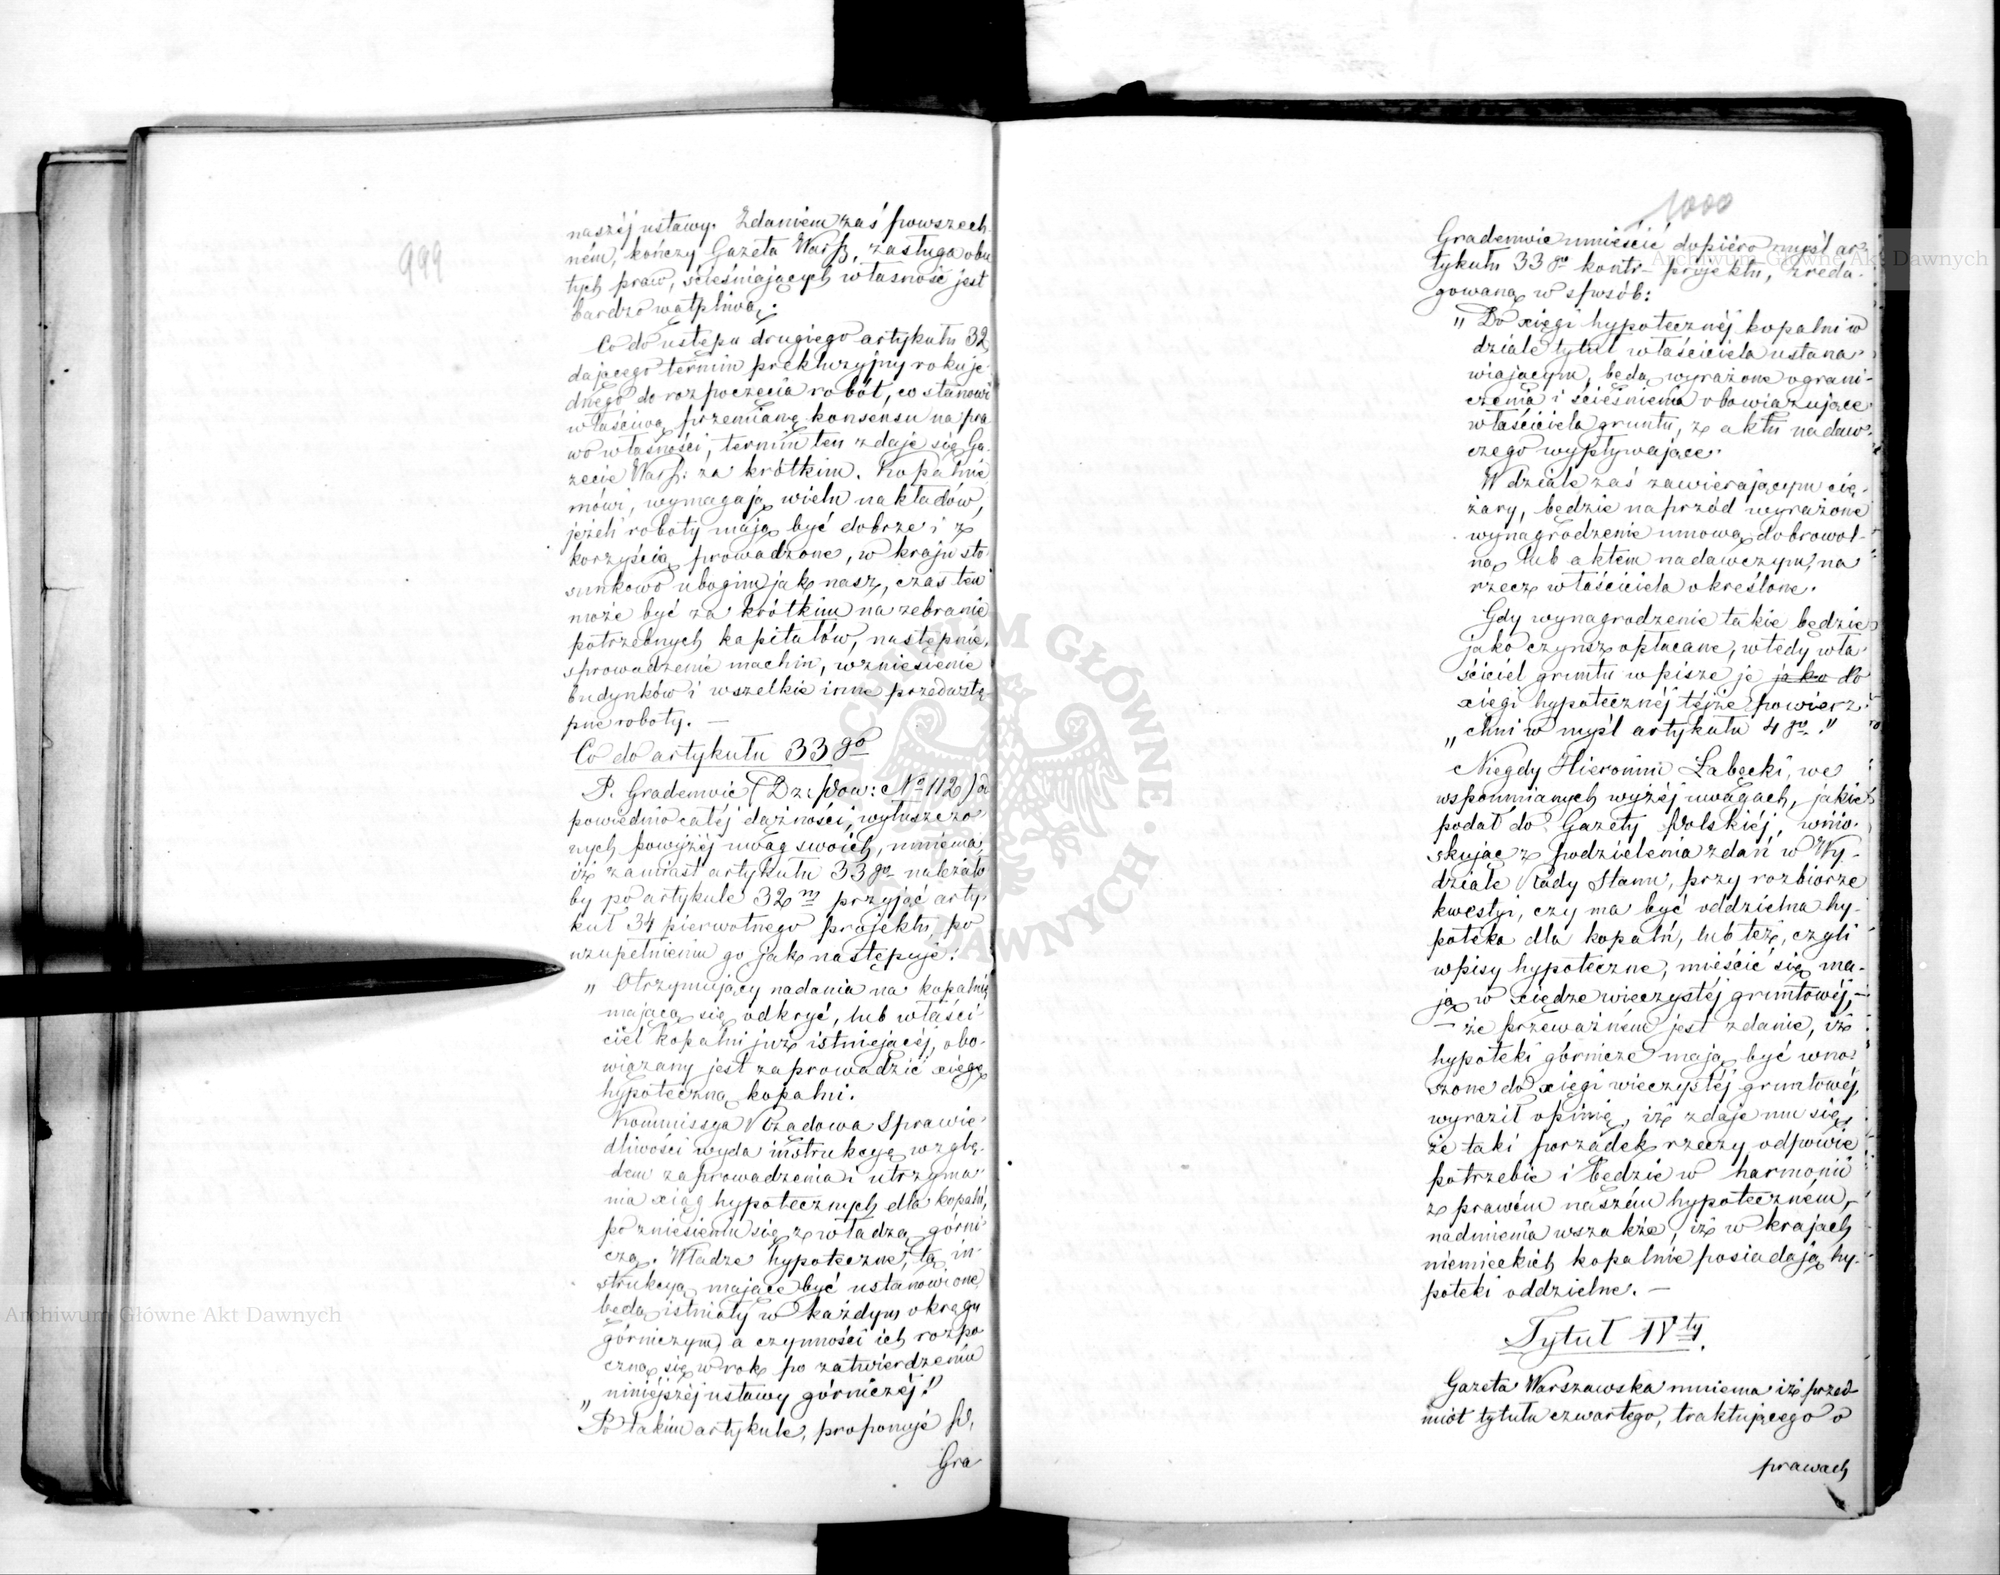 999
naszéj ustawy. Zdaniem zaś powszech-
ném, kończy Gazeta Warsz., zasługa obu
tych praw, ścieśniających własność jest
bardzo wątpliwą.
Co do ustępu drugiego artykułu 32
dającego termin prekluzyjny roku je-
dnego do rozpoczęcia robót, co stanowi
właściwą przemianę konsensu na pra
wo własności, termin ten zdaje się Ga-
zecie Warsz: za krótkim. Kopalnie
mówi, wymagają wielu nakładów,
jeżeli roboty mają być dobrze i z
korzyścią prowadzone, w kraju sto
sunkowo ubogim jak nasz, czas ten
może być za krótkim na zebranie
potrzebnych kapitałów, następnie,
sprowadzenie machin, wzniesienie
budynków i wszelkie inne przedwstę
pne roboty. —
Co do artykułu 33go
P. Gradenwic (Dz: Pow: No 112) od
powiednio całéj dążności, wyłuszczo
nych powyżéj uwag swoich, mniema,
iż zamiast artykułu 33go należało
by po artykule 32m przyjąć arty-
kuł 34 pierwotnego projektu, po
uzupełnieniu go jak następuje:
„ Otrzymujący nadania na kopalnię
mającą się odkryć, lub właści-
ciel kopalni już istniejącéj, obo-
wiązany jest zaprowadzić xięgę
hypoteczną kopalni.
Kommissya Rządowa Sprawie-
dliwości wyda instrukcyę wzglę-
dem zaprowadzenia i utrzyma-
nia xiąg hypotecznych dla kopalń,
po zniesieniu się z władzą górni-
czą. Władze hypoteczne, tą in-
strukcyą mające być ustanowione
będą istniały w każdym okręgu
górniczym, a czynności ich rozpo
czną się w rok po zatwierdzeniu
„ niniejszéj ustawy górniczéj."
Po takim artykule, proponuje P,
Gra
1000
Gradenwic umieścić dopiéro myśl ar-
tykułu 33go kontr-projektu, zreda-
gowaną w sposób:
„ Do xięgi hypotecznéj kopalni w
dziale tytuł właściciela ustana-
wiającym, będą wyrażone ograni-
czenia i ścieśnienia obowiązujące
właściciela gruntu, z aktu nadaw-
czego wypływające.
W dziale zaś zawierającym cię-
żary, będzie naprzód wyrażone
wynagrodzenie umową dobrowol-
ną lub aktem nadawczym, na
rzecz właściciela określone.
Gdy wynagrodzenie takie będzie
jako czynsz opłacane, wtedy wła-
ściciel gruntu wpisze je jako do
xięgi hypotecznéj téjże powierz-
„ chni w myśl artykułu 4go."
Niegdy Hieronim Łabęcki, we
wspomnianych wyżéj uwagach, jakie
podał do Gazety Polskiéj, wnio-
skując z podzielenia zdań w Wy-
dziale Rady Stanu, przy rozbiorze
kwestyi, czy ma być oddzielna hy-
poteka dla kopalń, lub też, czyli
wpisy hypoteczne, mieścić się ma-
ją w xiędze wieczystéj gruntowéj,—
— że przeważném jest zdanie, iż
hypoteki górnicze mają być wno-
szone do xięgi wieczystéj gruntowéj,
wyraził opinię, iż zdaje mu się,
że taki porządek rzeczy odpowie
potrzebie i będzie w harmonii
z prawém naszém hypoteczném,—
nadmienia wszakże, iż w krajach
niemieckich kopalnie posiadają hy-
poteki oddzielne. —
Tytuł IVty.
Gazeta Warszawska mniema iż przed-
miot tytułu czwartego, traktującego o
prawach
Archiwum Główne Akt Dawnych
Archiwum Główne Akt Dawnych
ARCHIWUM GŁÓWNE AKT DAWNYCH